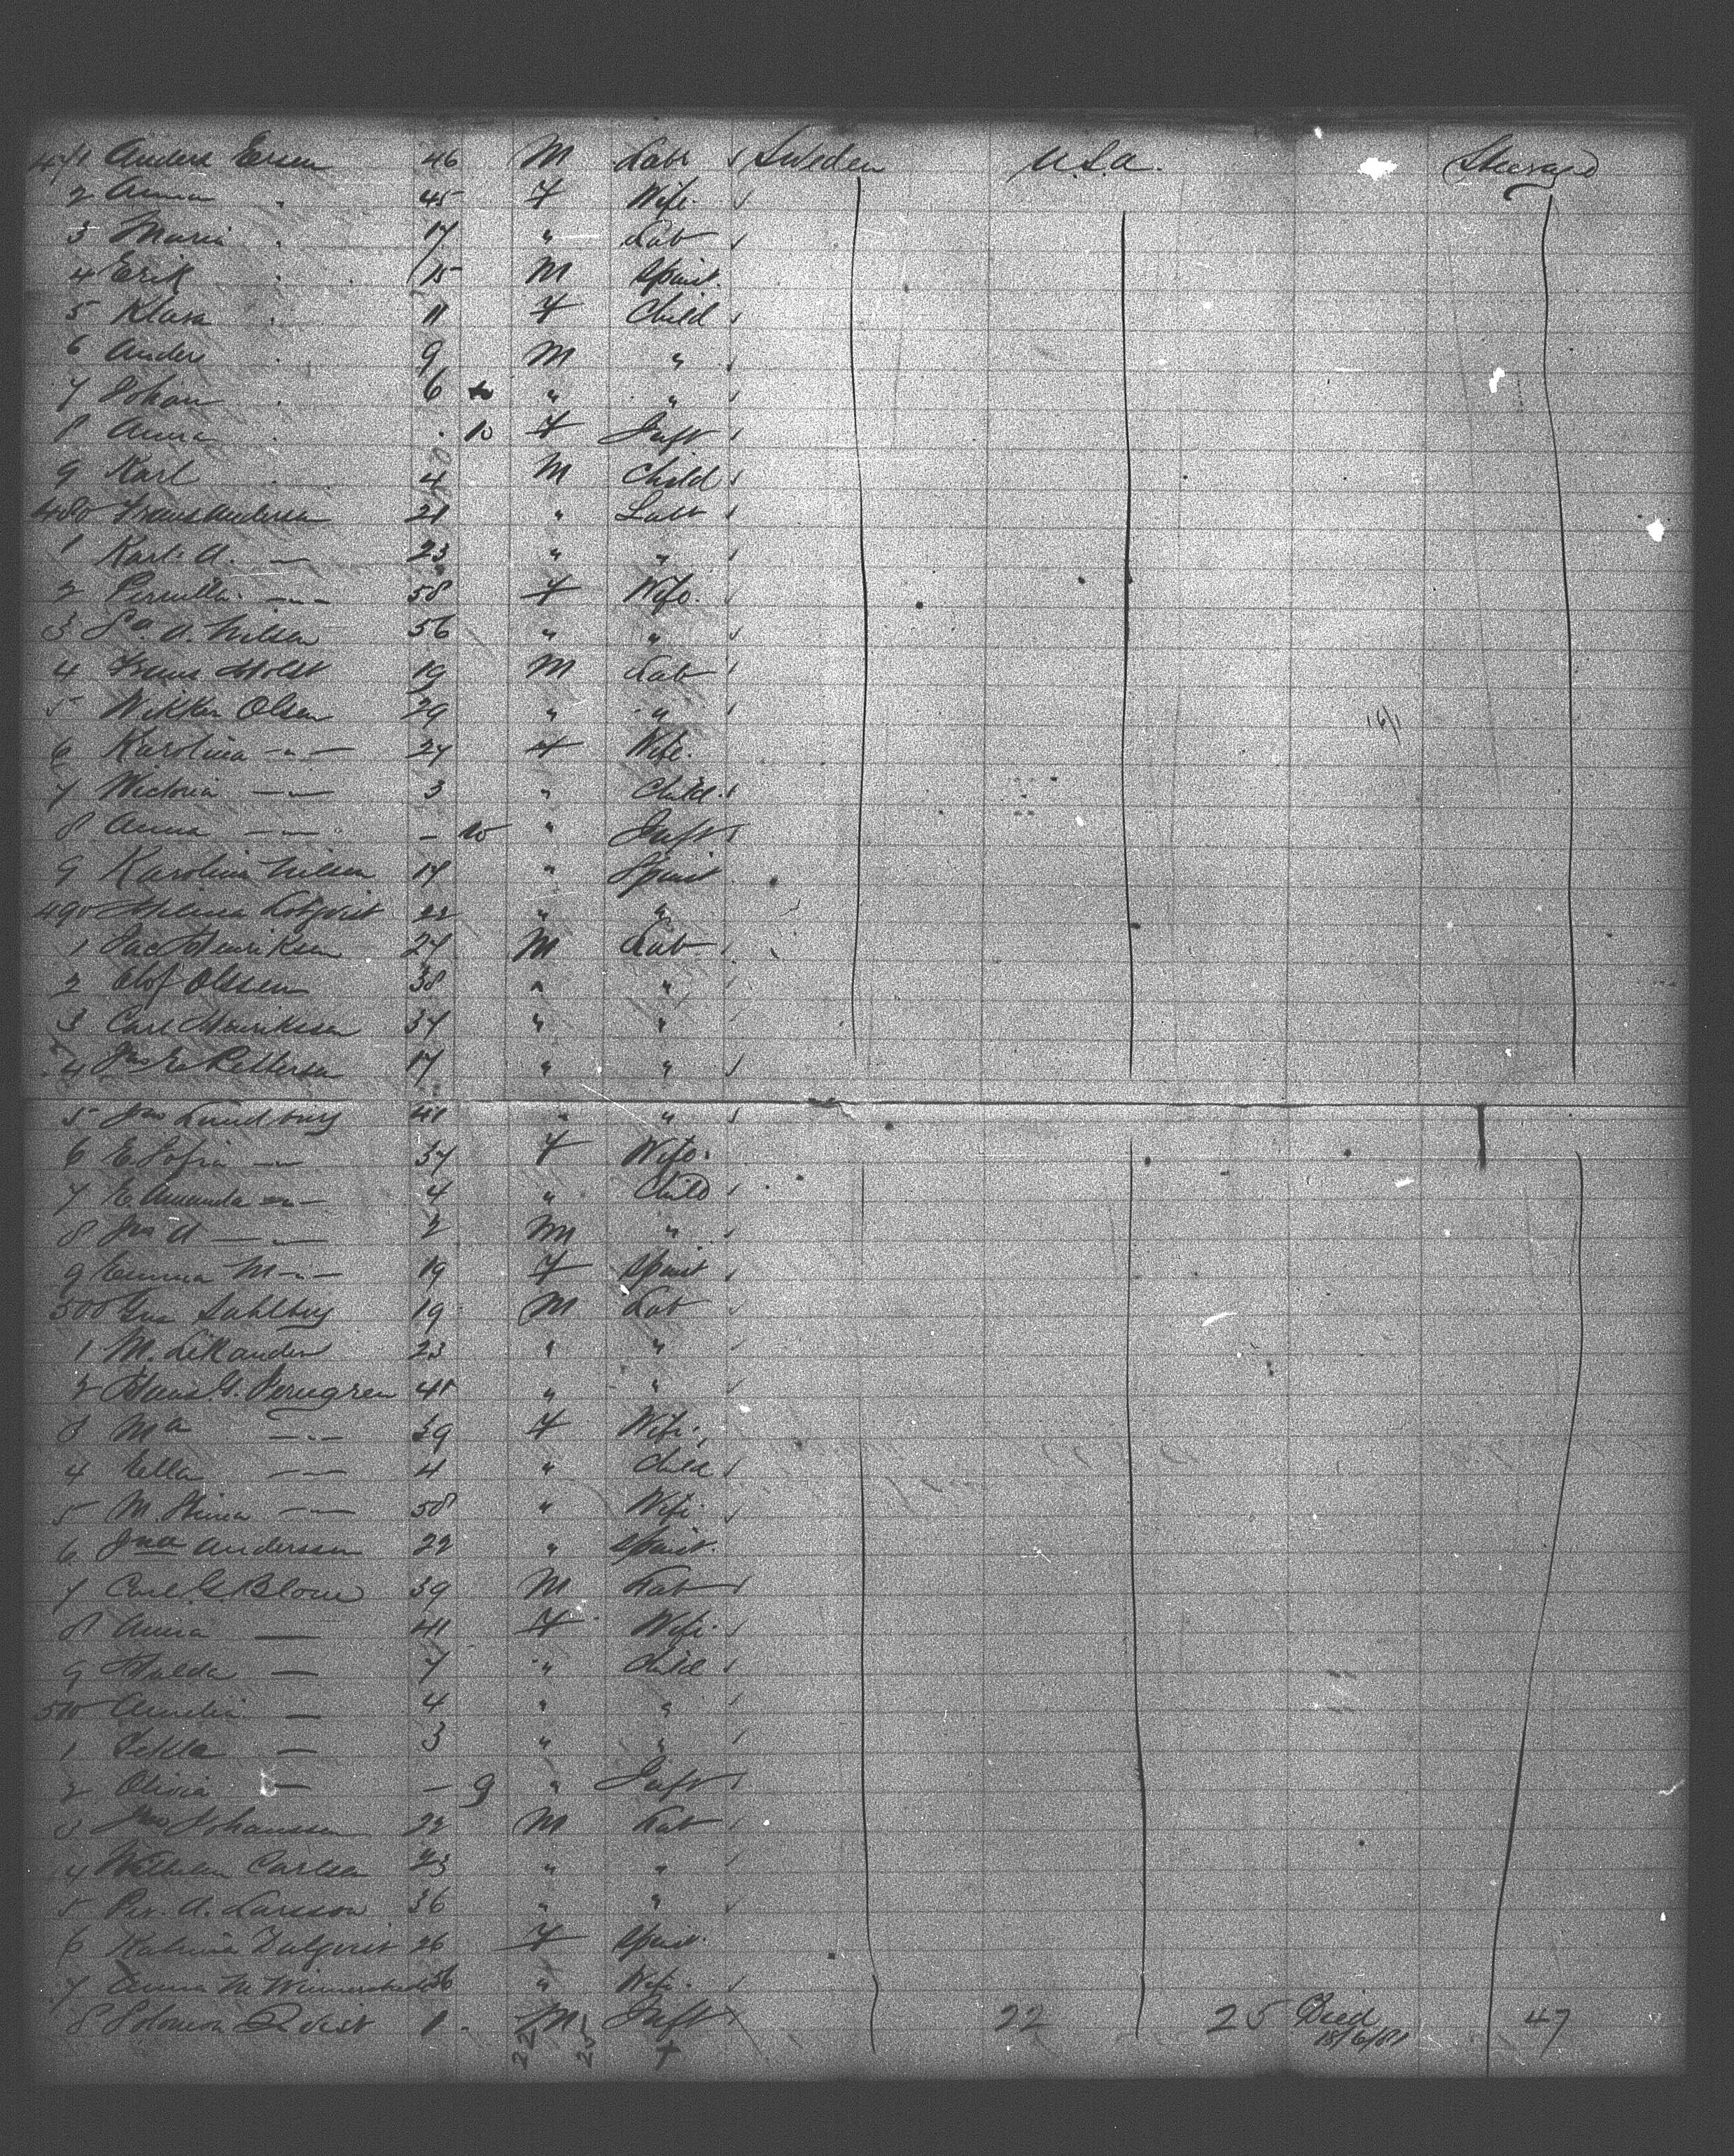 471 Anders Ersen 46 M Labr ✓ Sweden U.S.A. Steerage
2 Anna " 45 F Wife ✓
3 Maria " 17 " Lab ✓
4 Erik " 15 M Spinst.
5 Klara " 11 F Child ✓
6 Anders " 9 M " ✓
7 Johan " 6 " " ✓
8 Anna " . 10 F Inft ✓
9 Karl " 4 M Child ✓
480 Frans Andersen 21 " Labr ✓
1 Karl. A. —"— 23 " " ✓
2 Pernilla —"— 58 F Wife.
3 A. Nilsen 56 " " ✓
4 Frans Holst 19 M Lab ✓
5 Olsen 29 " " ✓
6 Karolina —"— 27 F Wife.
7 Wictoria —"— 3 " Child ✓
8 Anna —"— – 10 " Inft ✓
9 Karolina Nilsen 17 " Spinst
490 22 " "
1 Henriksen 27 M Lab ✓
2 Olof Olssen 38 " "
3 Carl Henrikssen 37 " "
4 Petterson 17 " " ✓
5 Jno Lundburg 41 " " ✓
6 E Sofia —"— 37 F Wife.
7 E Amanda —"— 4 " Child ✓
8 Jno A —"— 2 M " ✓
9 Emma M —"— 19 F Spinst ✓
500 Gus Sahlberg 19 M Lab ✓
1 M. 23 " " ✓
2 Hans G. 41 " " ✓
3 Ma —"— 39 F Wife.
4 Ella —"— 4 " Child ✓
5 M. Stina —"— 58 " Wife ✓
6 Jnoa Anderssen 22 " Spinst.
7 Carl G. Blom 39 M Lab ✓
8 Anna — 41 F Wife ✓
9 Hulda — 7 " Child ✓
510 Amelia — 4 " " ✓
1 Tekla — 3 " " ✓
2 Olivia — – 9 " Inft ✓
3 Jno Johanssen 22 M Lab ✓
4 Wilhelm Carlsen 23 " " ✓
5 Per. A. Larsson 36 " " ✓
6 Katrina Dalqvist 26 F Spinst.
7 Anna M 36 " Wife ✓
8 Solomon Qvist 1 . M Inft 22 25 Died 18/6/81 47
22 25 +